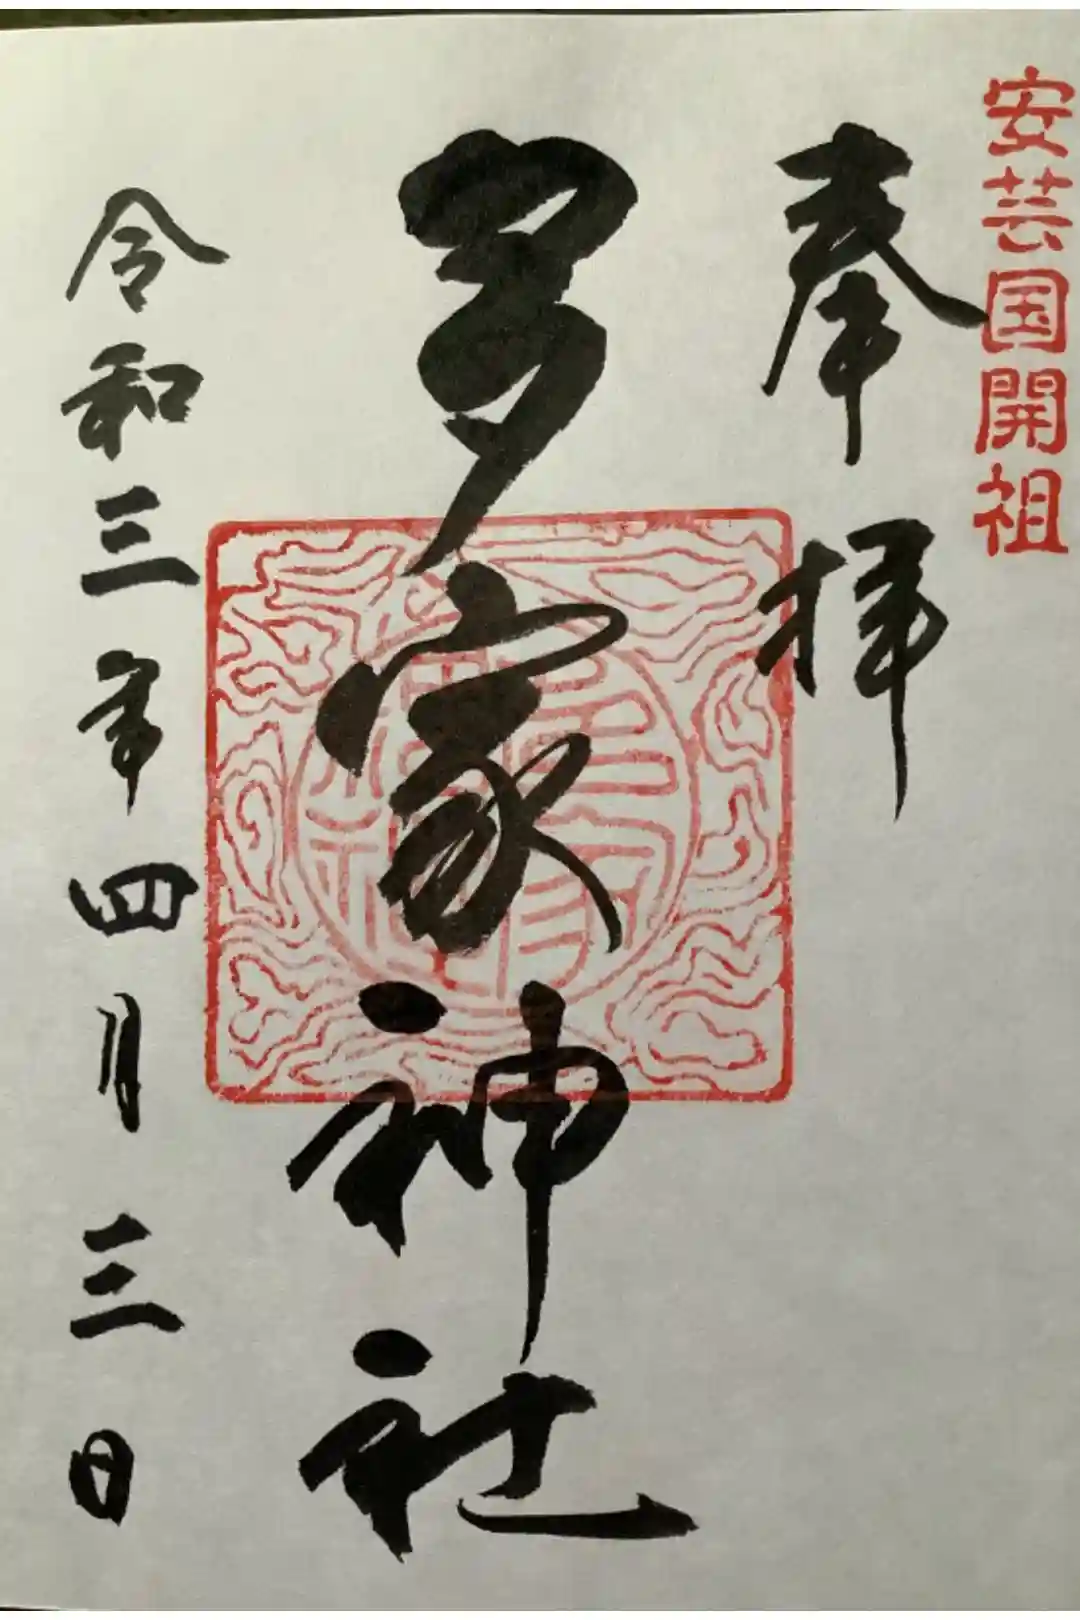 安芸国開祖
奉拝
多家神社
令和三年四月三日